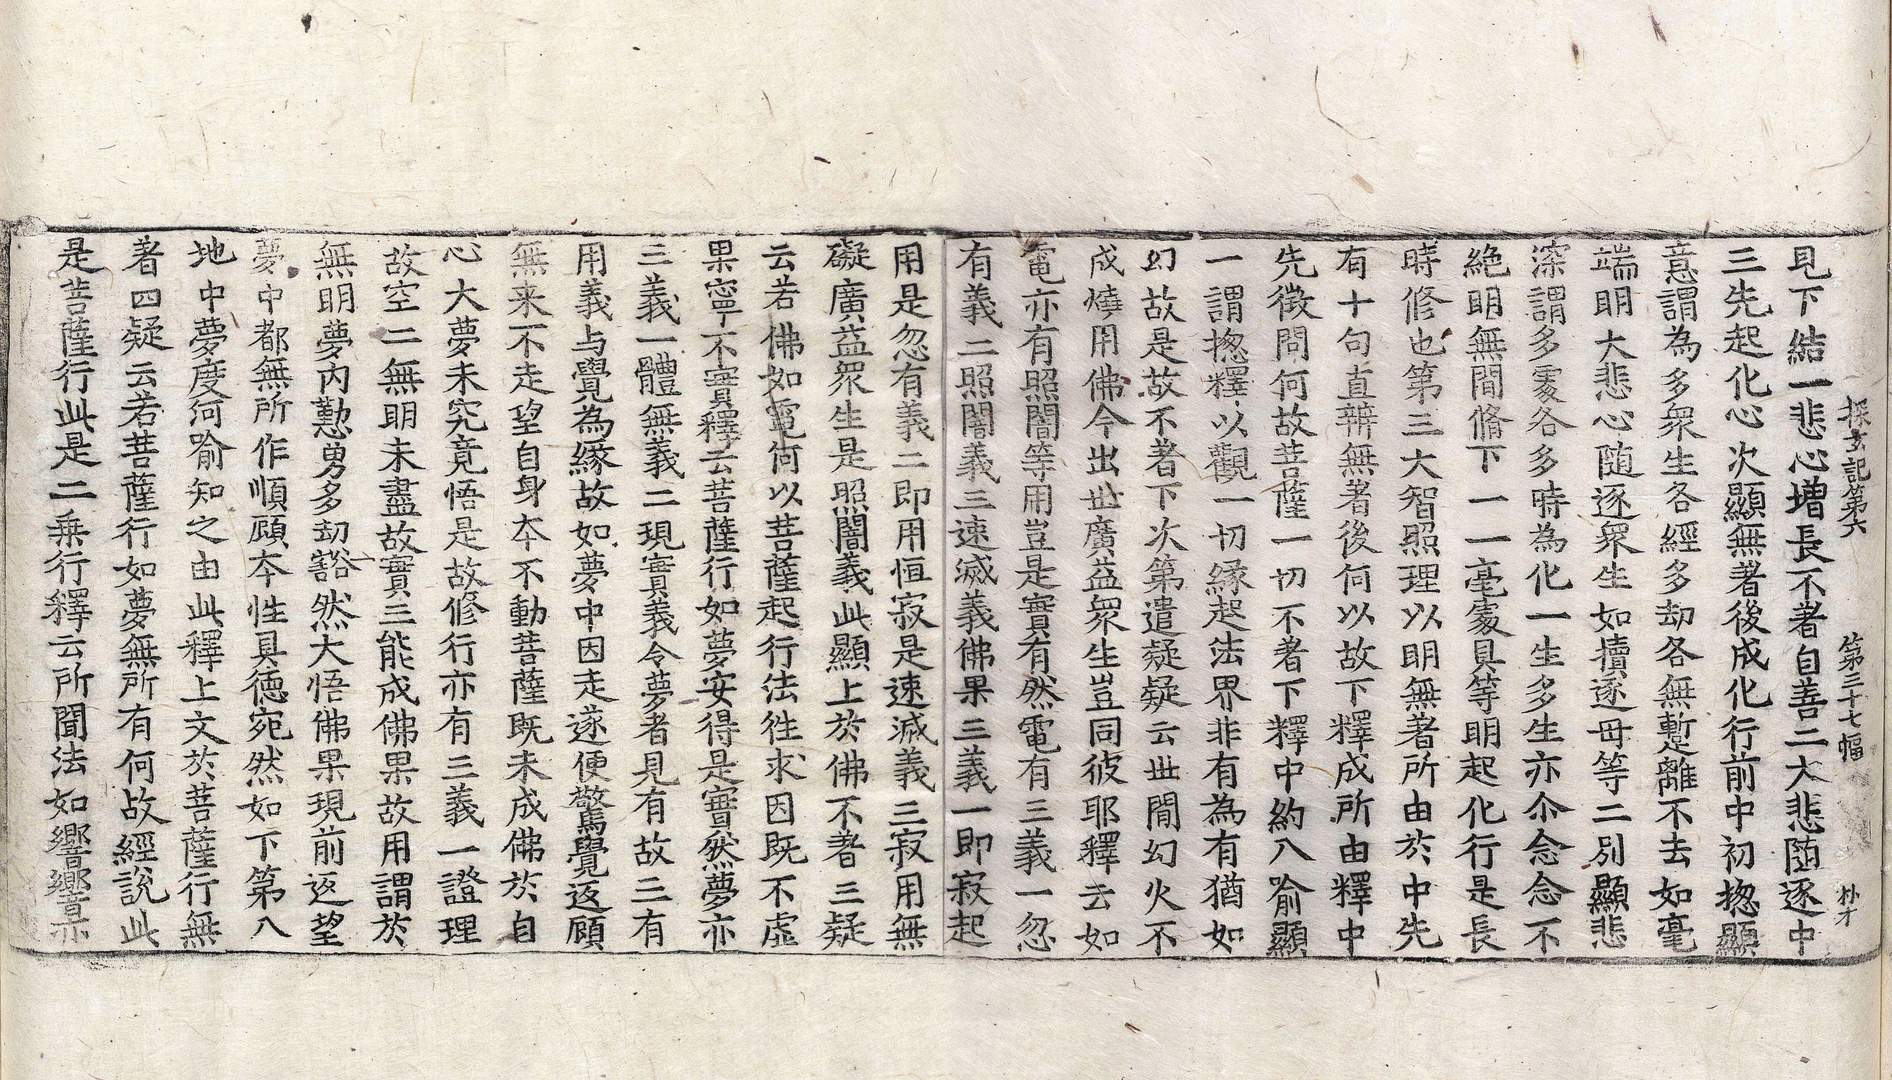 探玄記第六 第三十七幅 朴才
見下結一悲心増長不著自善二大悲随逐中
三先起化心次顯無著後成化行前中初揔顯
意謂為多衆生各經多劫各無蹔離不去如毫
端明大悲心随逐衆生如犢逐母等二別顯悲
深謂多䖏各多時為化一生多生亦尒念念不
絶明無間脩下一一毫䖏具等明起化行是長
時修也第三大智照理以明無著所由於中先
有十句直辨無著後何以故下釋成所由釋中
先徵問何故菩薩一切不著下釋中約八喻顯
一謂揔釋以觀一切縁起法界非有為有猶如
幻故是故不著下次第遣疑疑云世間幻火不
成燒用佛今出世廣益衆生豈同彼耶釋云如
電亦有照闇等用豈是實有然電有三義一忽
有義二照闇義三速滅義佛果三義一即寂起
用是忽有義二即用恒寂是速滅義三寂用無
礙廣益衆生是照闇義此顯上於佛不著三疑
云若佛如電何以菩薩起行法徃求因既不虛
果寧不實釋云菩薩行如夢安得是實然夢亦
三義一體無義二現實義令夢者見有故三有
用義与覺為縁故如夢中因走遂便驚覺返顧
無来不走望自身夲不動菩薩既未成佛於自
心大夢未究竟悟是故修行亦有三義一證理
故空二無明未盡故實三能成佛果故用謂於
無明夢內懃勇多劫豁然大悟佛果現前返望
夢中都無所作順顧夲性具德宛然如下第八
地中夢度河喻知之由此釋上文於菩薩行無
著四疑云若菩薩行如夢無所有何故經說此
是菩薩行此是二乗行釋云所聞法如響響亦